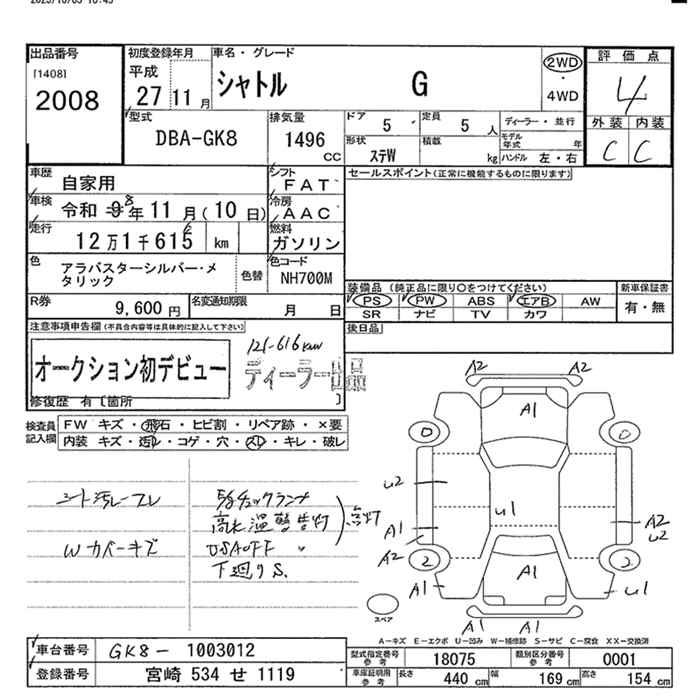 出品番号
[1408]
2008
初度登録年月
平成
27 11月
車名・グレード
シャトル G
2WD
・
4WD
評価点
4
外装 内装
C C
型式
DBA-GK8
排気量
1496
cc
ドア
5
定員
5 人
ディーラー・並行
モデル年式 年
形状
ステW
積載
kg
ハンドル 左・右
車歴
自家用
シフト
FAT
セールスポイント(正常に機能するものに限ります)
車検
令和 8年 11月(10日)
冷房
AAC
走行
12万1千615 km
6
燃料
ガソリン
色
アラバスターシルバー・メタリック
色替
色コード
NH700M
装備品(純正品に限り○をつけてください)
新車保証書
PS PW ABS エアB AW
有・無
SR ナビ TV カワ
R券
9,600 円
名変通知期限
月 日
後日品
注意事項申告欄(不具合内容等は具体的に記入して下さい)
オークション初デビュー
121-616km
ディーラー出品
修復歴 有〔箇所 〕
検査員記入欄
FW キズ・飛石・ヒビ割・リペア跡・×要
内装 キズ・汚レ・コゲ・穴・スレ・キレ・破レ
シート汚レ・スレ
Wカバーキズ
E/gチェックランプ
高水温警告灯
点灯
VSAOFF 〃
下廻りS.
A2 A2
A1
U2
U1
A1
A2
A2
U2
2 2
A1
A1
U1
A1 A1
スペア
A－キズ E－エクボ U－凹み W－補修跡 S－サビ C－腐食 XX－交換済
車台番号
GK8－ 1003012
登録番号
宮崎 534 せ 1119
型式指定番号
参考
18075
類別区分番号
参考
0001
車庫証明用
参考
長さ
440 cm
幅
169 cm
高さ
154 cm